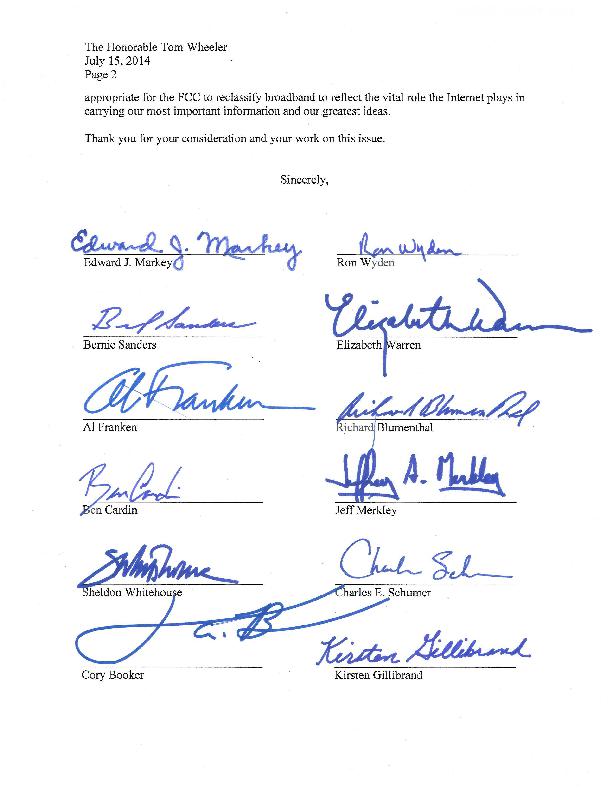 The Honorable Tom Wheeler
July 15, 2014
Page 2
appropriate for the FCC to reclassify broadband to reflect the vital role the Internet plays in
carrying our most important information and our greatest ideas.
Thank you for your consideration and your work on this issue.
Sincerely,
Edward J. Markey Ron Wyden
Edward J. Markey Ron Wyden
Sanders Elizabeth Warren
Bernie Sanders Elizabeth Warren
Al Franken Richard Blumenthal
Al Franken Richard Blumenthal
Ben Cardin Jeffrey A. Merkley
Ben Cardin Jeff Merkley
Sheldon Whitehouse Charles E. Schumer
Kirsten Gillibrand
Cory Booker Kirsten Gillibrand